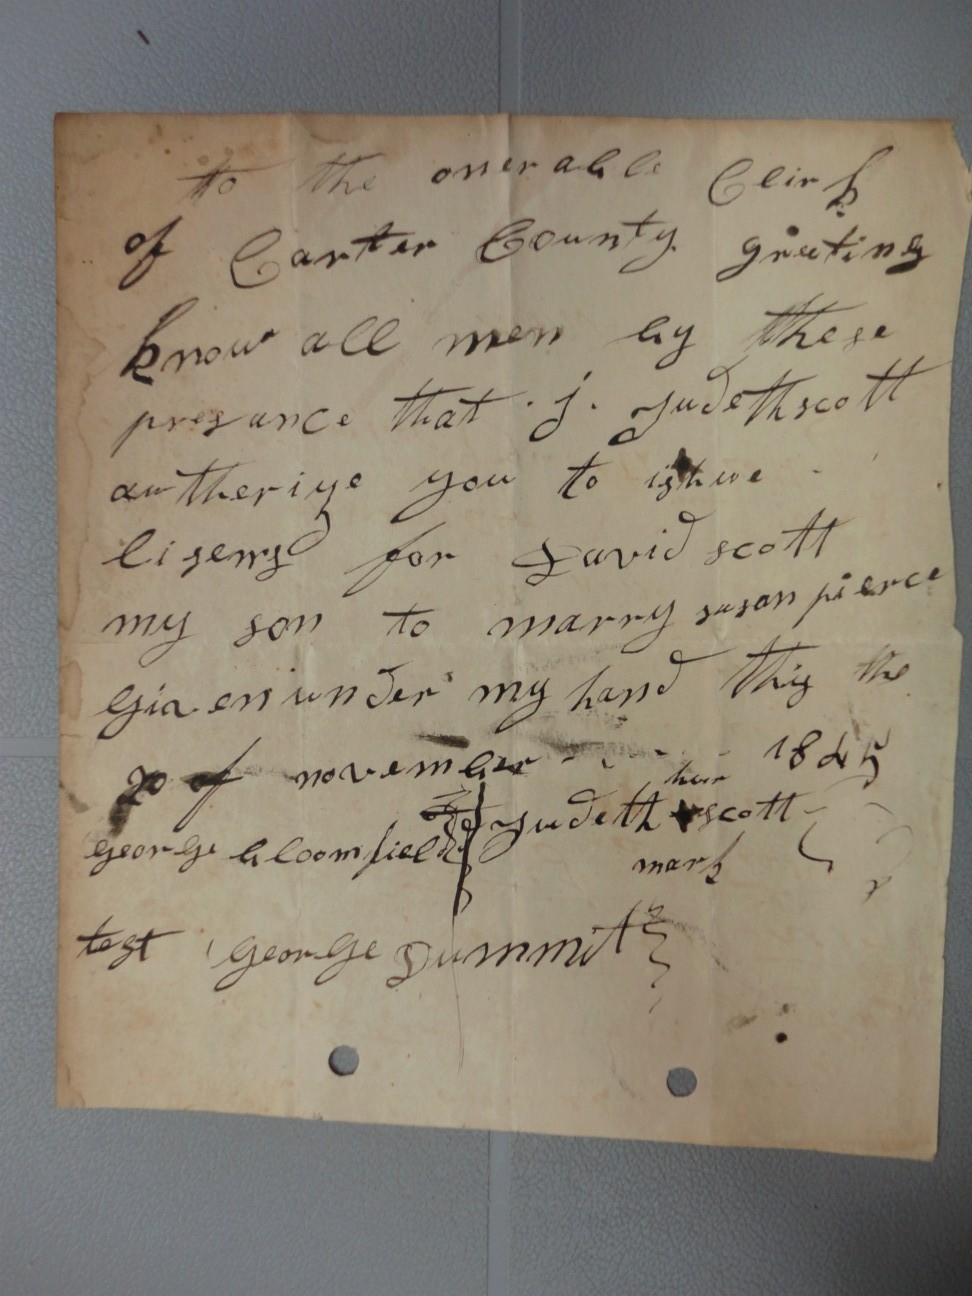 to the onerable Clirk
of Carter County greeting
know all men by these
presance that . j . judeth scott
autherize you to ishue
lisens for David scott
my son to marry susan pierce
given under my hand this the
20 of november - - - - 1845
her
judeth x scott
mark
george bloomfield
test george Summit